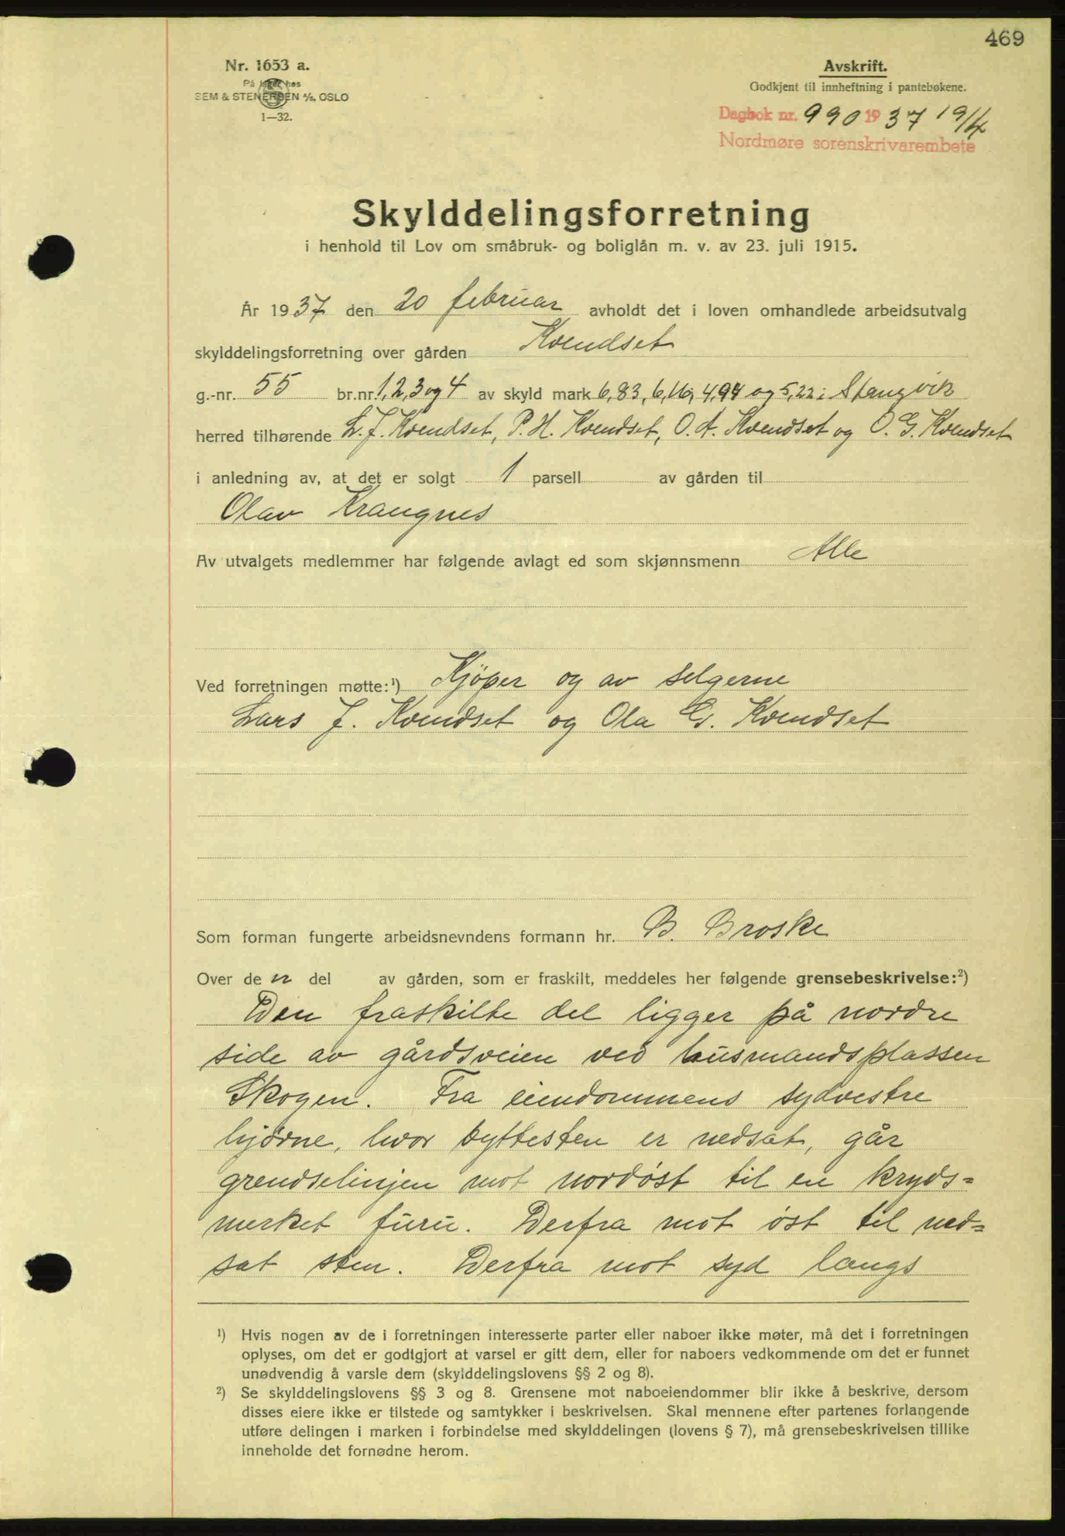 469
Nr. 1653 a.
På lager hos
SEM & STENERSEN A/S. OSLO
1—32.
Avskrift.
Godkjent til innheftning i pantebøkene.
Dagbok nr. 990 1937 19/4
Nordmøre sorenskrivarembete
Skylddelingsforretning
i henhold til Lov om småbruk- og boliglån m. v. av 23. juli 1915.
År 1937 den 20 februar avholdt det i loven omhandlede arbeidsutvalg
skylddelingsforretning over gården Kvendset
g.-nr. 55 br.nr. 1,2,3 og 4 av skyld mark 6,83, 6,16, 4,94 og 5,22 i Stangvik
herred tilhørende L. J. Kvendset, P. H. Kvendset, O. A. Kvendset og O. G. Kvendset
i anledning av, at det er solgt 1 parsell av gården til
Olav Krangnes
Av utvalgets medlemmer har følgende avlagt ed som skjønnsmenn Alle
Ved forretningen møtte:¹) Kjøper og av selgerne
Lars J. Kvendset og Ola G. Kvendset
Som forman fungerte arbeidsnevndens formann hr. B. Broske
Over de n del av gården, som er fraskilt, meddeles her følgende grensebeskrivelse:²)
Den fraskilte del ligger på nordre
side av gårdsveien ved husmandsplassen
Skogen. Fra eiendommens sydvestre
hjørne, hvor byttesten er nedsat, går
grendselinjen mot nordøst til en kryds=
merket furu. Derfra mot øst til ned=
sat sten. Derfra mot syd langs
¹) Hvis nogen av de i forretningen interesserte parter eller naboer ikke møter, må det i forretningen
oplyses, om det er godtgjort at varsel er gitt dem, eller for naboers vedkommende om det er funnet
unødvendig å varsle dem (skylddelingslovens §§ 2 og 8).
²) Se skylddelingslovens §§ 3 og 8. Grensene mot naboeiendommer blir ikke å beskrive, dersom
disses eiere ikke er tilstede og samtykker i beskrivelsen. Skal mennene efter partenes forlangende
utføre delingen i marken i forbindelse med skylddelingen (lovens § 7), må grensebeskrivelsen tillike
inneholde det fornødne herom.